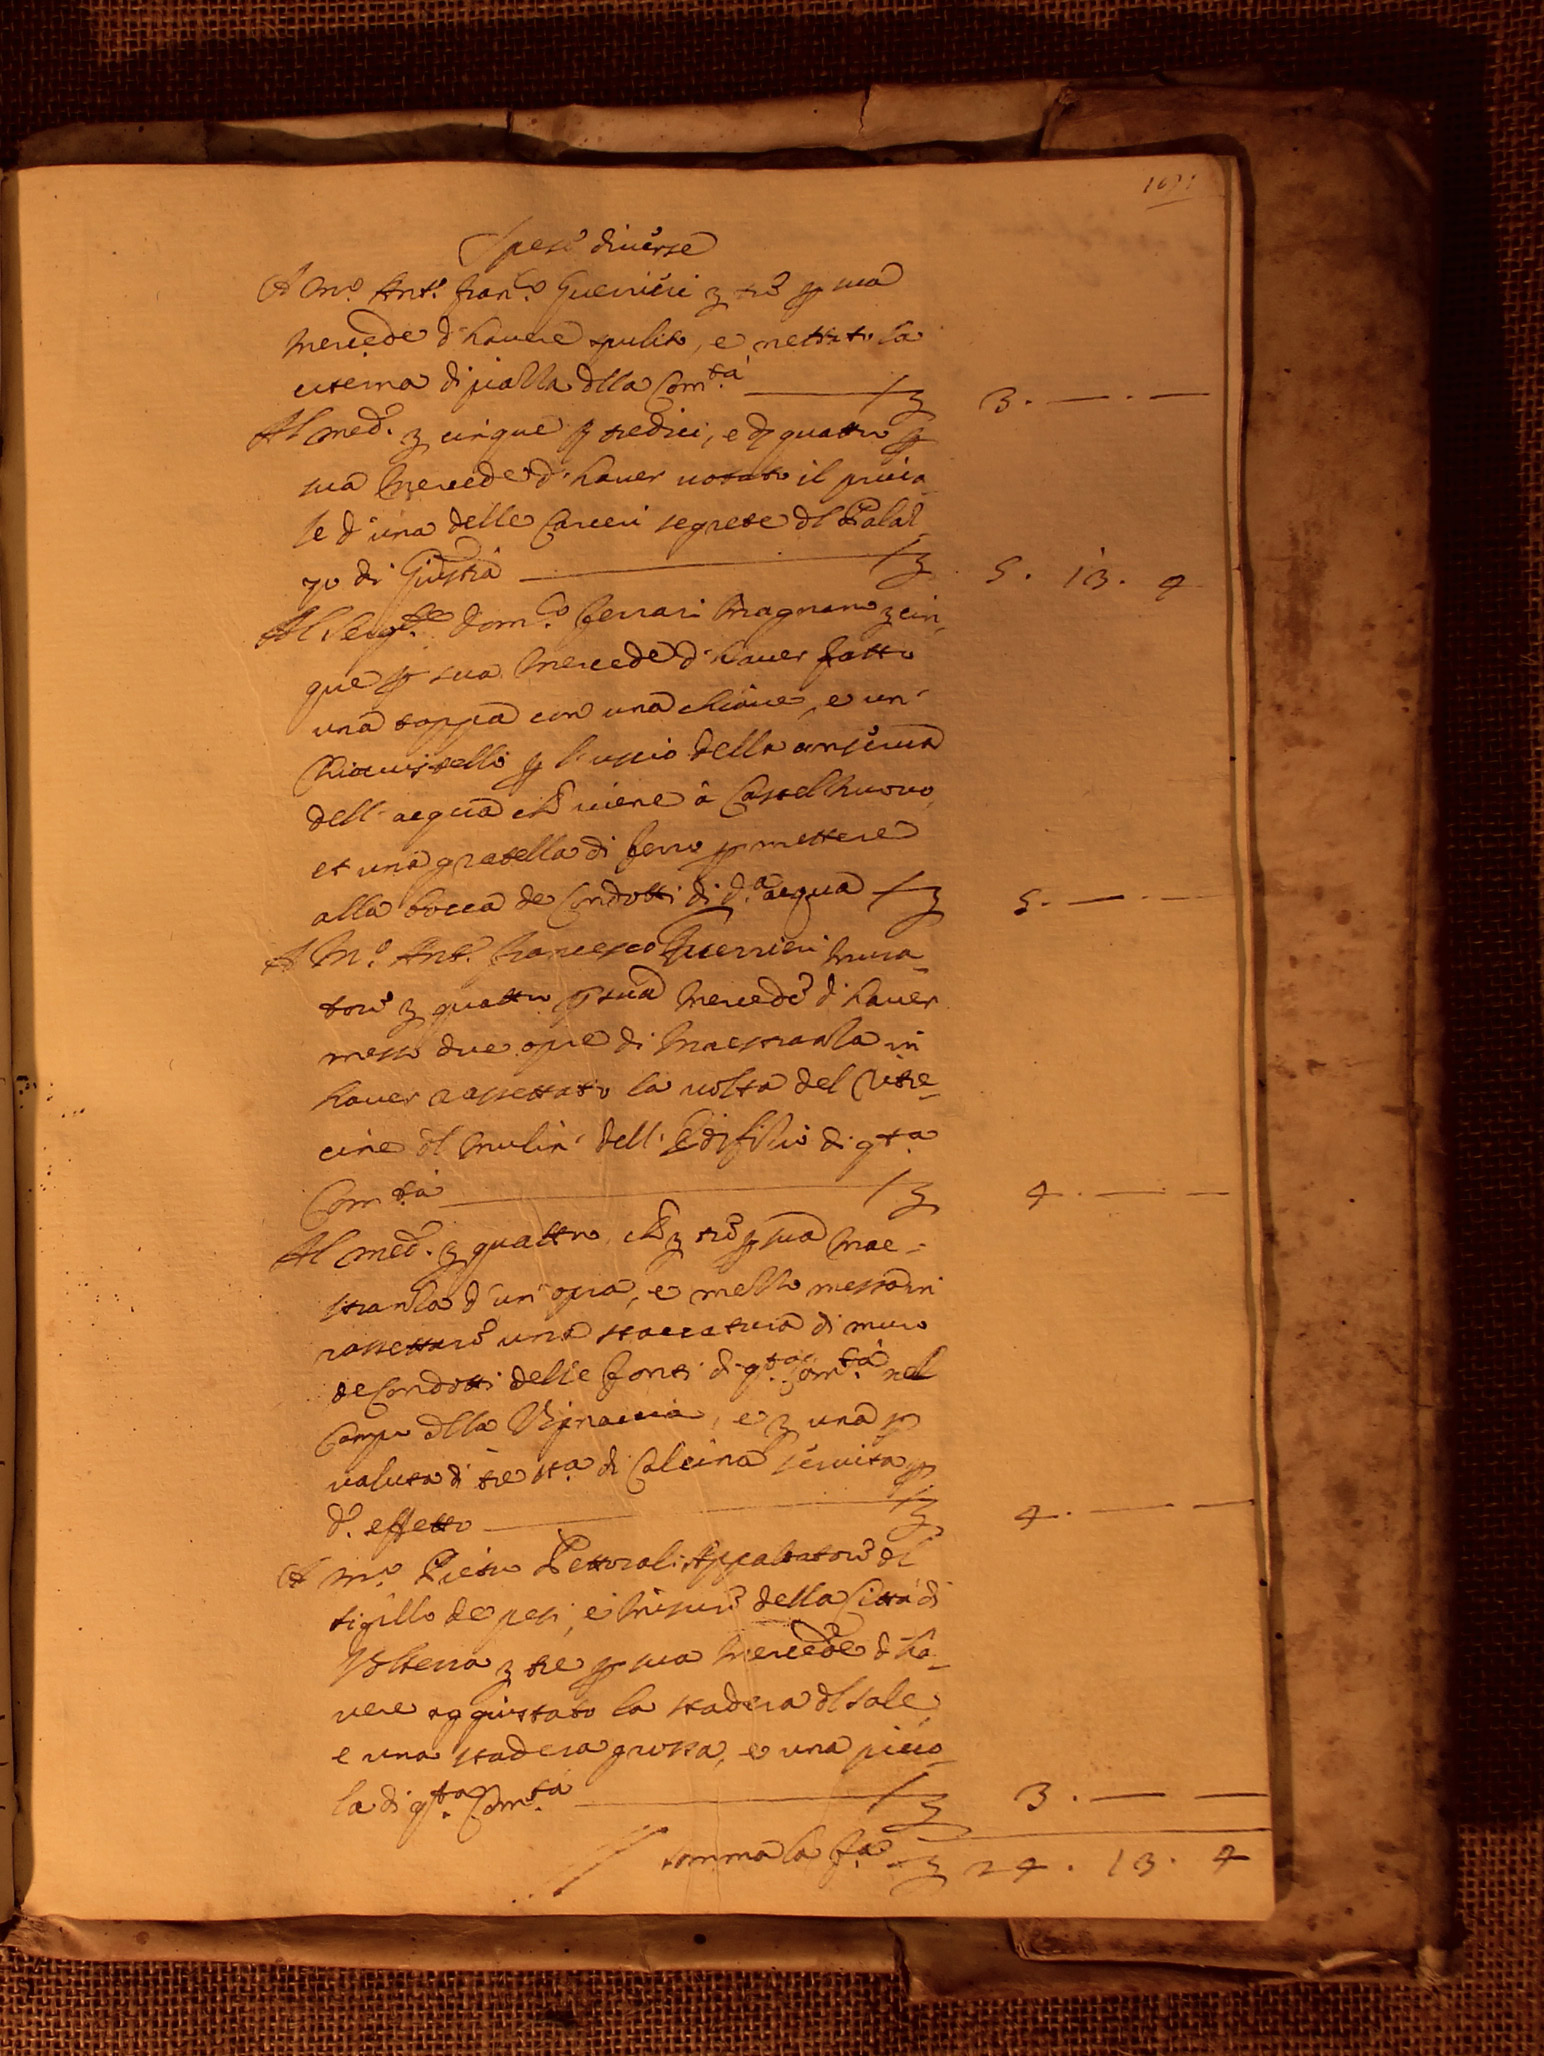 Spese diverse
A mro. Ant.o Fran.co Guerrieri £ tre p sua
mercede d'havere pulito, e nettato la
citerna di piazza dlla Com.tà £ 3. — . —
Al med.o £ cinque s tredici, e d quattro p
sua mercede d'haver votato il privia-
le d'una delle Carceri segrete dl Palaz
zo di Giustizia £ 5. 13. 4
Al Serg.te Dom.co Ferrari Magnano £ cin-
que p sua mercede d'haver fatto
una toppa con una chiave, e un'
Chiavistello p l'uscio della conserva
dell'acqua che viene à Castelnuovo,
et una gratella di ferro p mettere
alla bocca de Condotti di d.a acqua £ 5. — . —
A M.o Ant.o Francesco Guerrieri mura-
tore £ quattro p sua mercede d'haver
messo due opre di maestranza in
haver rassettato la volta del ritre-
cine dl mulin' dell'Edifizio di q.ta
Com.tà £ 4. — . —
Al med.o £ quattro, che £ tre p sua mae-
stranza d'un'opra, e mezzo messa in
rassettare una staccatura di muro
de Condotti delle fonti di q.ta Com.tà nel
Campo dlla Vignaccia, e £ una p
valuta di tre sta di Calcina servita p
d.o effetto £ 4. — . —
A mro. Pietro Pettorali Appaltatore dl
sigillo de pesi, e misure della Città di
Volterra £ tre p sua mercede d'ha-
vere aggiustato la stadera dl sale,
e una stadera grossa, e una picco-
la di q.ta Com.tà £ 3. — —
somma la f.a £ 24. 13. 4